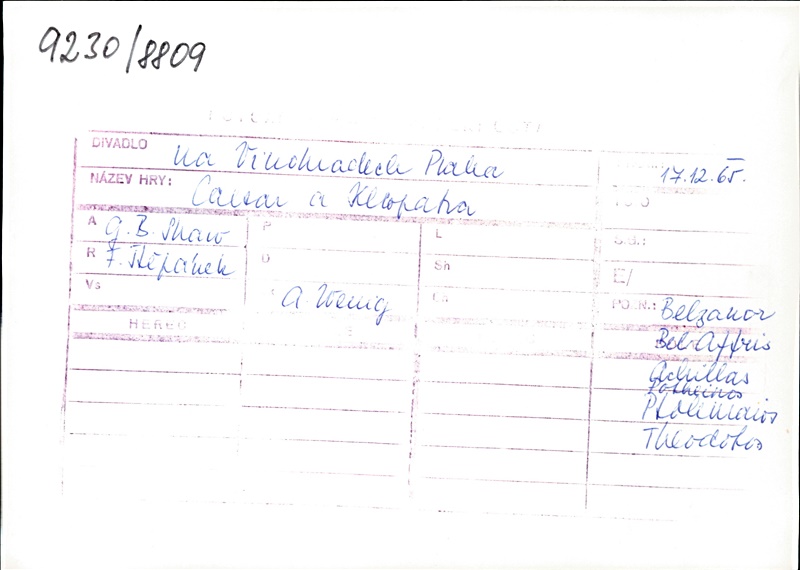 9230/8809
DIVADLO na Vinohradech Praha 17.12.65.
NÁZEV HRY: Caesar a Kleopatra
A G. B. Shaw P L S.B.:
R F. Štěpánek Sh E/
Vs A. Wenig POZN.: Belzanor
HEREC Bel-Affris
Achillas
Potheinos
Ptolemaios
Theodotos